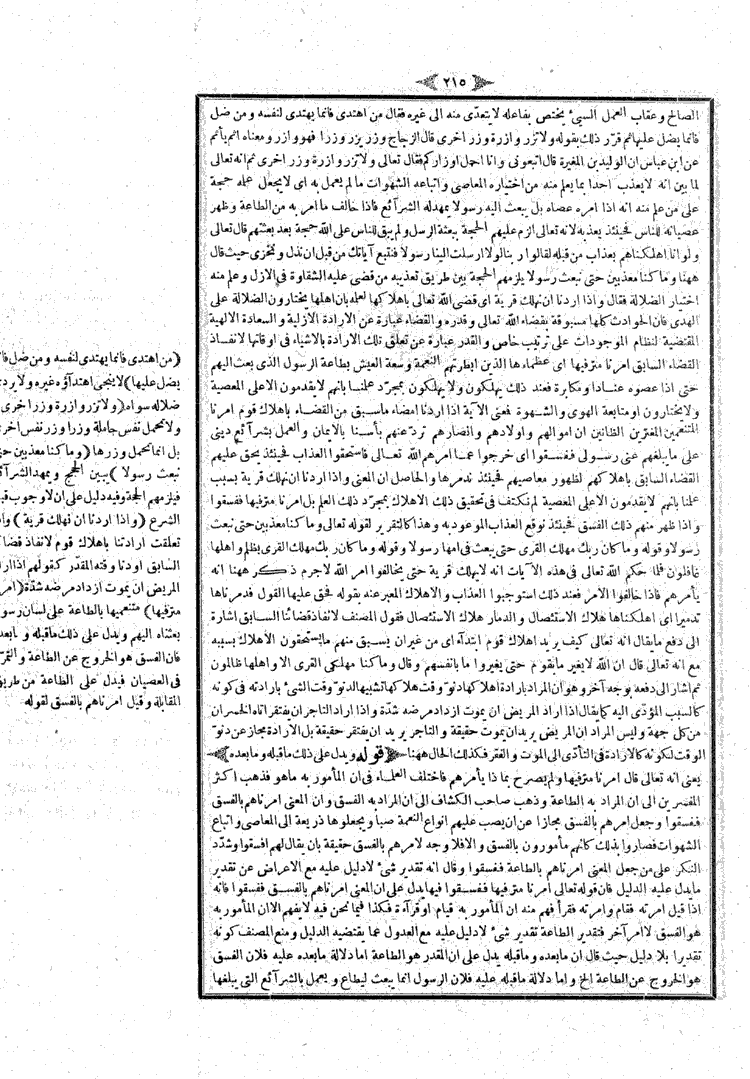 ٢١٥
الصالح وعقاب العمل السيئ يختص بفاعله لا يتعدى منه الى غيره فقال من اهتدى فانما يهتدى لنفسه ومن ضل
فانما يضل عليها ثم قرّر ذلك بقوله ولا تزر وازرة وزر اخرى قال الزجاج وزر يزر وزرا فهو وازر ومعناه اثم يأثم
عن ابن عباس ان الوليد بن المغيرة قال اتبعونى وانا احمل اوزاركم فقال تعالى ولا تزر وازرة وزر اخرى ثم انه تعالى
لما بين انه لا يعذب احدا بما يعلم منه من اختياره المعاصى واتباعه الشهوات ما لم يعمل به اى لا يجعل علمه حجة
على من علم منه انه اذا امره عصاه بل يبعث اليه رسولا يمهد له الشرآئع فاذا خالف ما امر به من الطاعة وظهر
عصيانه للناس فحينئذ يعذبه لانه تعالى الزم عليهم الحجة ببعثة الرسل ولم يبق للناس على الله حجة بعد بعثتهم قال تعالى
ولو انا اهلكناهم بعذاب من قبله لقالوا ربنا لولا ارسلت الينا رسولا فنتبع آياتك من قبل ان نذل ونخزى حيث قال
ههنا وما كنا معذبين حتى نبعث رسولا يلزمهم الحجة بين طريق تعذيبه من قضى عليه الشقاوة فى الازل وعلم منه
اختيار الضلالة فقال واذا اردنا ان نهلك قرية اى قضى الله تعالى باهلاكها لعلمه بان اهلها يختارون الضلالة على
الهدى فان الحوادث كلها مسبوقة بقضاء الله تعالى وقدره والقضاء عبارة عن الارادة الازلية والسعادة الالهية
المقتضية لنظام الموجودات على ترتيب خاص والقدر عبارة عن تعلق تلك الارادة بالاشياء فى اوقاتها لانفاذ
القضاء السابق امرنا مترفيها اى عظماءها الذين ابطرتهم النعمة وسعة العيش بطاعة الرسول الذى بعث اليهم
حتى اذا عصوه عنادا ومكابرة فعند ذلك يهلكون ولا يهلكون بمجرّد علمنا بانهم لا يقدمون الا على المعصية
ولا يختارون الا متابعة الهوى والشهوة فعنى الآية اذا اردنا امضاء ما سبق من القضاء باهلاك قوم امرنا
المتنعمين المغترين الظانين ان اموالهم واولادهم وانصارهم تردّ عنهم بأسنا بالايمان والعمل بشرآئع دينى
على ما يبلغهم عنى رسولى ففسقوا اى خرجوا عما امرهم الله تعالى فاستحقوا العذاب فحينئذ يحق عليهم
القضاء السابق باهلاكهم لظهور معاصيهم فحينئذ ندمرها والحاصل ان المعنى واذا اردنا ان نهلك قرية بسبب
علمنا بانهم لا يقدمون الا على المعصية لم نكتف فى تحقيق ذلك الاهلاك بمجرّد ذلك العلم بل امرنا مترفيها ففسقوا
واذا ظهر منهم ذلك الفسق فحينئذ نوقع العذاب الموعود به وهذا كالتقرير لقوله تعالى وما كنا معذبين حتى نبعث
رسولا وقوله وما كان ربك مهلك القرى حتى يبعث فى امها رسولا وقوله وما كان ربك مهلك القرى بظلم واهلها
غافلون فلما حكم الله تعالى فى هذه الآيات انه لا يهلك قرية حتى يخالفوا امر الله لا جرم ذكر ههنا انه
يأمرهم فاذا خالفوا الامر فعند ذلك استوجبوا العذاب والاهلاك المعبر عنه بقوله فحق عليها القول فدمرناها
تدميرا اى اهلكناها هلاك الاستئصال والدمار هلاك الاستئصال فقول المصنف لانفاذ قضائنا السابق اشارة
الى دفع ما يقال انه تعالى كيف يريد اهلاك قوم ابتدآء من غير ان يسبق منهم ما يستحقون الاهلاك بسببه
مع انه تعالى قال ان الله لا يغير ما بقوم حتى يغيروا ما بانفسهم وقال وما كنا مهلكى القرى الا واهلها ظالمون
ثم اشار الى دفعه بوجه آخر وهو ان المراد بارادة اهلاكها دنوّ وقت هلاكها تشبيها لدنوّ وقت الشئ بارادته فى كونه
كالسبب المؤدّى اليه كما يقال اذا اراد المريض ان يموت ازداد مرضه شدّة واذا اراد التاجر ان يفتقر اتاه الخسران
من كل جهة وليس المراد ان المريض يريد ان يموت حقيقة والتاجر يريد ان يفتقر حقيقة بل الارادة مجاز عن دنوّ
الوقت لكونه كالارادة فى التأدّى الى الموت والفقر فكذلك الحال ههنا ﴿ قوله ويدل على ذلك ما قبله وما بعده ﴾
يعنى انه تعالى قال امرنا مترفيها ولم يصرح بماذا يأمرهم فاختلف العلماء فى ان المأمور به ما هو فذهب اكثر
المفسرين الى ان المراد به الطاعة وذهب صاحب الكشاف الى ان المراد به الفسق وان المعنى امرناهم بالفسق
ففسقوا وجعل امرهم بالفسق مجازا عن ان يصب عليهم انواع النعمة صبا ويجعلوها ذريعة الى المعاصى واتباع
الشهوات فصاروا بذلك كانهم مأمورون بالفسق والا فلا وجه لامرهم بالفسق حقيقة بان يقال لهم افسقوا وشدّد
النكر على من جعل المعنى امرناهم بالطاعة ففسقوا وقال انه تقدير شئ لا دليل عليه مع الاعراض عن تقدير
ما يدل عليه الدليل فان قوله تعالى امرنا مترفيها ففسقوا فيها يدل على ان المعنى امرناهم بالفسق ففسقوا فانه
اذا قيل امرته فقام وامرته فقرأ فهم منه ان المأمور به قيام او قرآءة فكذا فيما نحن فيه لا يفهم الا ان المأمور به
هو الفسق لا امر آخر فتقدير الطاعة تقدير شئ لا دليل عليه مع العدول عما يقتضيه الدليل ومنع المصنف كونه
تقديرا بلا دليل حيث قال ان ما بعده وما قبله يدل على ان المقدر هو الطاعة اما دلالة ما بعده عليه فلان الفسق
هو الخروج عن الطاعة الخ واما دلالة ما قبله عليه فلان الرسول انما يبعث ليطاع ويعمل بالشرآئع التى يبلغها
(من اهتدى فانما يهتدى لنفسه ومن ضل فا
يضل عليها) لا ينجى اهتدآؤه غيره ولا يردى
ضلاله سواه (ولا تزر وازرة وزر اخرى
ولا تحمل نفس حاملة وزرا وزر نفس اخرى
بل انما تحمل وزرها (وما كنا معذبين حتى
نبعث رسولا) يبين الحجج ويمهد الشرآ
فيلزمهم الحجة وفيه دليل على ان لا وجوب قب
الشرع (واذا اردنا ان نهلك قرية) وا
تعلقت ارادتنا باهلاك قوم لانفاذ قضا
السابق او دنا وقته المقدّر كقولهم اذا ار
المريض ان يموت ازداد مرضه شدّة (امر
مترفيها) متنعميها بالطاعة على لسان رسو
بعثناه اليهم ويدل على ذلك ما قبله وما بعد
فان الفسق هو الخروج عن الطاعة والتمر
فى العصيان فيدل على الطاعة من طريق
المقابلة وقيل امرناهم بالفسق لقوله